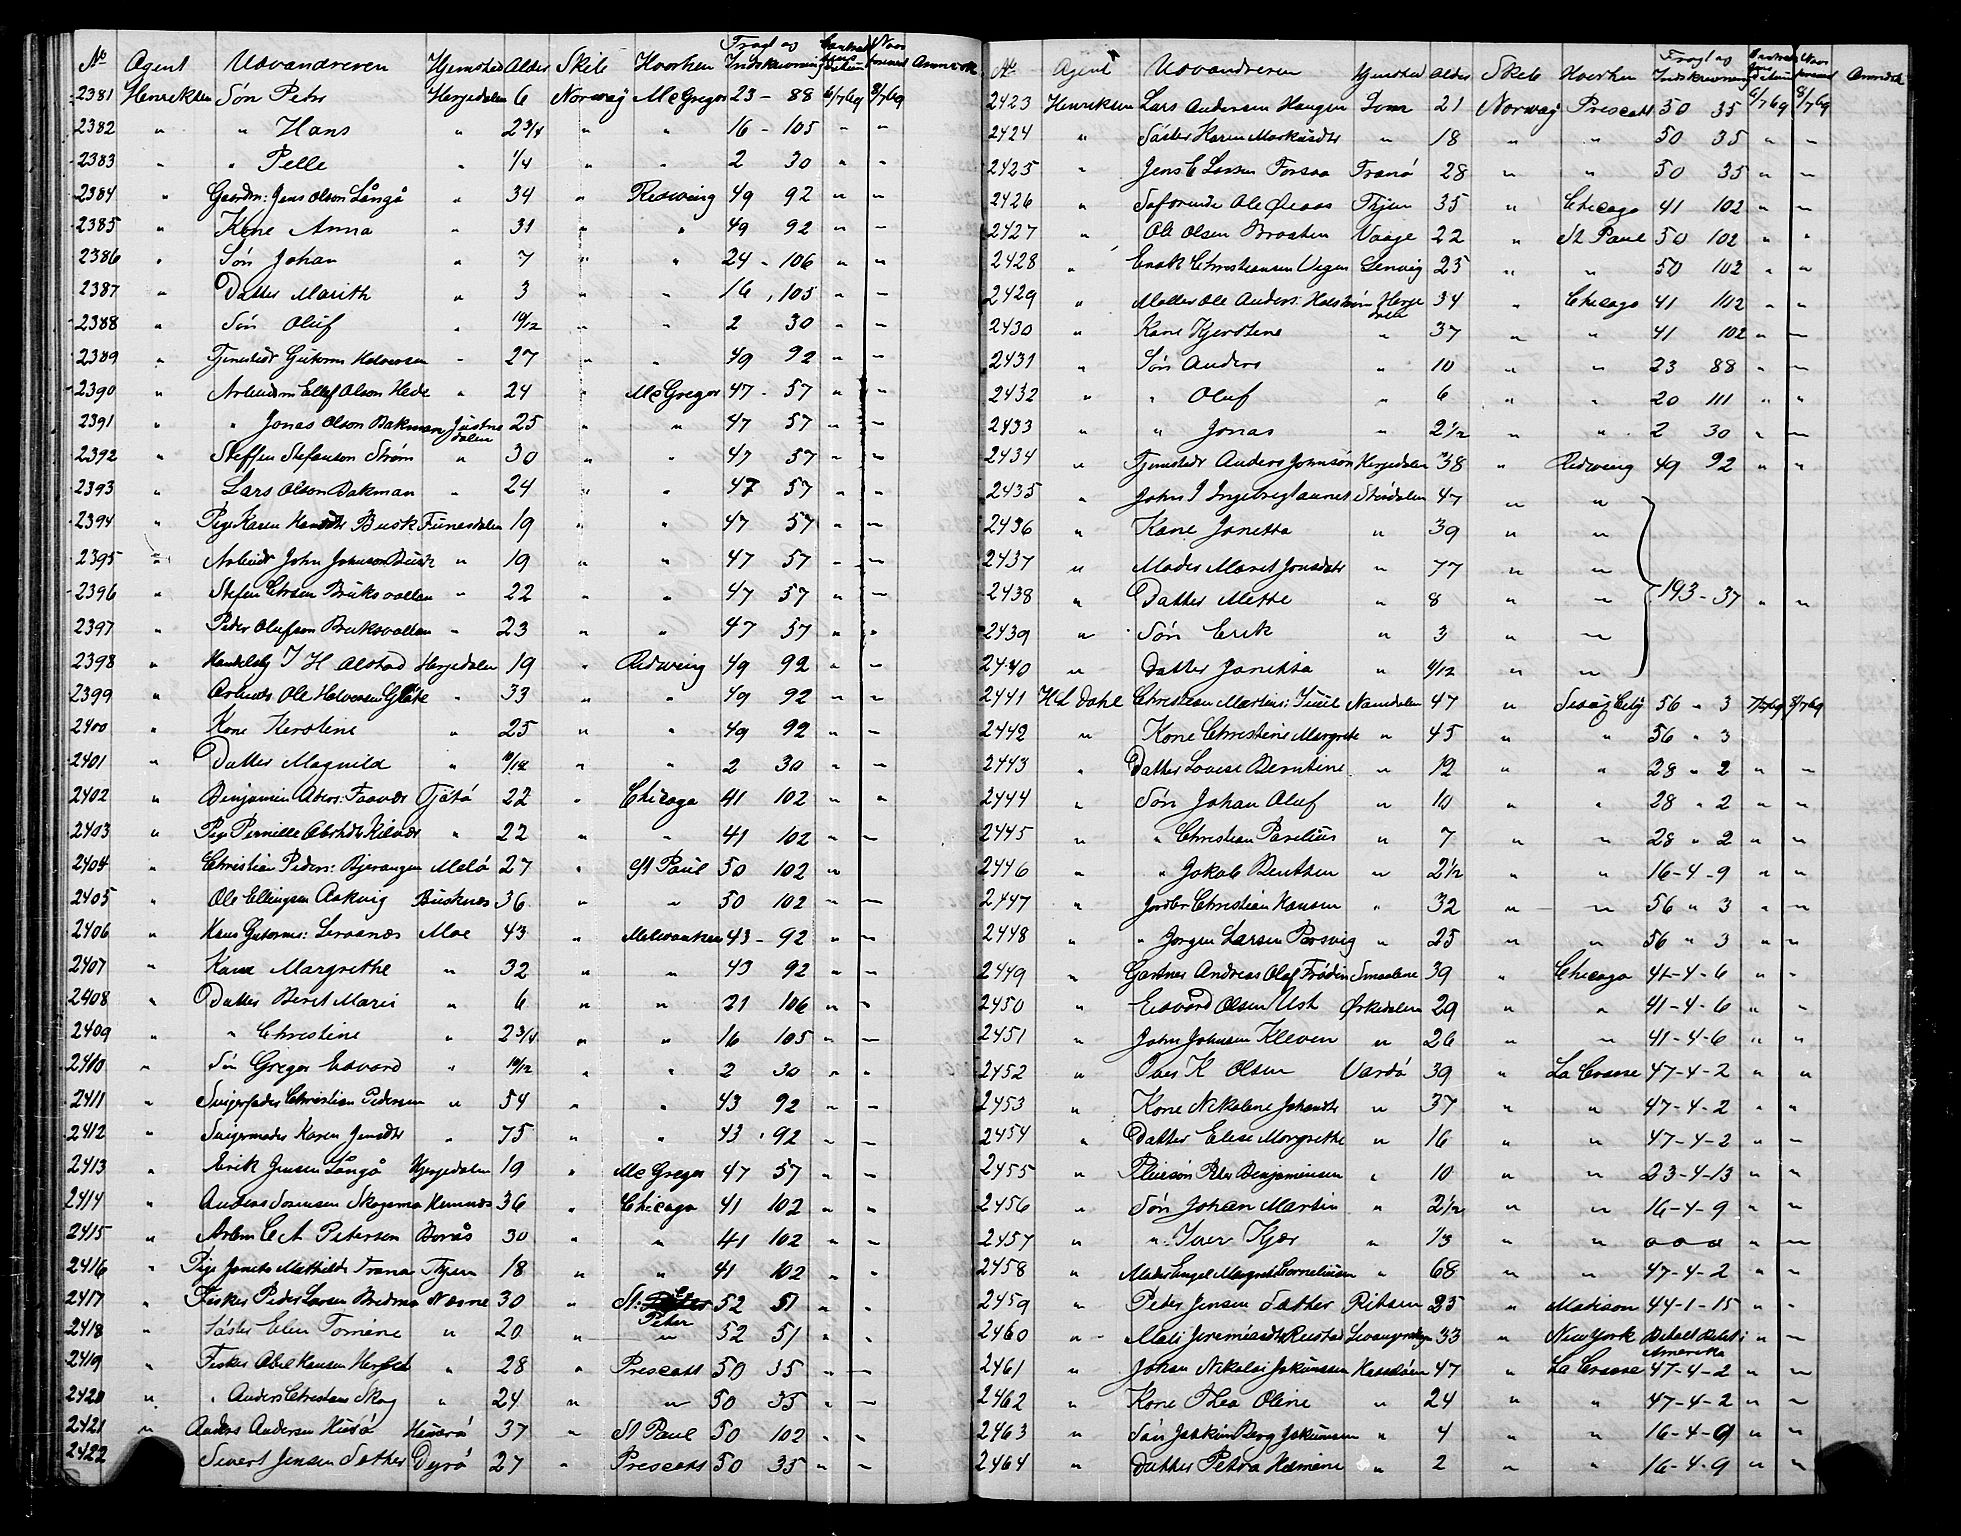 No Agent Udvandreren Hjemsted Alder Skib Hvorhen Fragt og Indskrivning Anmærk
2381 Henriksen Søn Peter Herjedalen 6 Norway McGregor 23 - 88 6/7 69 8/7 69
2382 " " Hans " 2 3/4 " " 16 - 105 " "
2383 " " Pelle " 1/4 " " 2 30 " "
2384 " Gaardm: Jens Olsen Långå " 34 " Redwing 49 92 " "
2385 " Kone Anna " 31 " " 49 92 " "
2386 " Søn Johan " 7 " " 24 - 106 " "
2387 " Datter Marith " 3 " " 16 , 105 " "
2388 " Søn Oluf " 10/12 " " 2 30 " "
2389 " Tjenestedr Gutorm Halversen " 27 " " 49 92 " "
2390 " Arbeidsm Ellef Olson Hede " 24 " McGregor 47 - 57 " "
2391 " " Jonas Olson Bakman 25 " " 47 57 " "
2392 " Steffen Stefanson Strøm " 30 " " 47 57 " "
2393 " Lars Olson Bakman " 24 " " 47 57 " "
2394 " Pige Karen Busk Funesdalen 19 " " 47 57 " "
2395 " Arbeidr John Johnson Busk " 19 " " 47 57 " "
2396 " Stefen Bruksvallen " 22 " " 47 57 " "
2397 " Peder Olufson Bruksvallen " 23 " " 47 57 " "
2398 " J H Alstad Herjedalen 19 " Redwing 49 92 " "
2399 " Arbeidr Ole Halversen Glöte " 33 " " 49 92 " "
2400 " Kone Kerstine " 25 " " 49 92 " "
2401 " Datter Magnild " 10/12 " " 2 30 " "
2402 " Benjamin Abers: Faavær Tjøtø 22 " Chicago 41 102 " "
2403 " Pige Pernille " 22 " " 41 102 " "
2404 " Christian Peders: Bjerangen Melø 27 " St Paul 50 102 "
2405 " Ole Ellingsen Aakvig Busknes 36 " " 50 102 " "
2406 " Hans Gutorms: Moe 43 " Milwaukee 43 - 92 " "
2407 " Kone Margrethe " 32 " " 43 92 " "
2408 " Datter Beret Marie " 6 " " 21 106 " "
2409 " " Christine " 2 3/4 " " 16 105 " "
2410 " Søn Greger Edvard " 10/12 " " 2 30 " "
2411 " Svigerfader Christian Pedersen " 54 " " 43 92 " "
2412 " Svigermoder Karen Jensdtr " 75 " " 43 , 92 " "
2413 " Erik Jensen Långå Herjedalen 19 " McGregor 47 57 " "
2414 " Andreas Sorensen Skogsmo Hemnæs 36 " Chicago 41 102 " "
2415 " Arbm C A Petersen Borås 30 " " 41 102 " "
2416 " Pige Janete Mathilde Tranø Thjem 18 " " 41 102 " "
2417 " Fisker Peder Larsen Bredmo Næsne 30 " St: Peter 52 51 " "
2418 " Søster Elen Tomine " 20 " " 52 51 " "
2419 " Fisker Abel Hansen " 28 " Prescott 50 35 " "
2420 " " Anders Christians Skog " 24 " " 50 35 " "
2421 " Anders Andersen 37 " St Paul 50 102 " "
2422 " Sivert Jensen Sæther Dyrø 27 " Prescott 50 35 " "
No Agent Udvandreren Hjemsted Alder Skib Hvorhen Fragt og Indskrivning Anmærk
2423 Henriksen Lars Andersen Haugen Lom 21 Norway Prescott 50 35 6/7 69 8/7 69
2424 " Søster Karen Markusdtr " 18 " " 50 35 " "
2425 " Jens C Larsen Forsaa Tranø 28 " " 50 35 " "
2426 " Ole Thjem 35 " Chicago 41 102 " "
2427 " Ole Olsen Brosten Vaage 22 " St Paul 50 102 " "
2428 " Enok Christiansen Vegen Lenvig 25 " " 50 102 " "
2429 " Møller Ole Anders: Holstrøm Herjedalen 34 " Chicago 41 102 " "
2430 " Kone Kjerstine " 37 " " 41 102 " "
2431 " Søn Anders " 10 " " 23 88 " "
2432 " " Oluf " 6 " " 20 111 " "
2433 " " Jonas " 2 1/2 " " 2 30 " "
2434 " Tjenestedr Anders Johnsøn Herjedalen 38 " Redwing 49 92 " "
2435 " John J Størdalen 47 " "
2436 " Kone Janetta " 39 " "
2437 " Moder Maret Jonsdatr " 77 " "
2438 " Datter Mette " 8 " " 193 - 37 " "
2439 " Søn Erik " 3 " "
2440 " Datter Janetta " 9/12 " "
2441 H L Dahl Christian Martins: Juul Namdalen 47 " City 56 " 3 7/7 69 8/7 69
2442 " Kone Christine Margrete " 45 " " 56 " 3
2443 " Datter Lovise Berntine " 12 " " 28 " 2 " "
2444 " Søn Johan Oluf " 10 " " 28 " 2 " "
2445 " " Christian Pavelius " 7 " " 28 " 2 " "
2446 " " Jakob Benthen " 2 1/2 " " 16-4-9 " "
2447 " Christian Hansen " 32 " " 56 " 3 " "
2448 " " Jørgen Larsen Pervig " 25 " " 56 " 3 " "
2449 " Gartner Andreas Olaf Frødin Smaalene 39 " Chicago 41-4-6 " "
2450 " Edvard Olsen Ust Ørkedalen 29 " " 41-4-6 " "
2451 " John Johnsen Kleven " 26 " " 41-4-6 " "
2452 " Iver K Olsen Vardø 39 " La Crosse 47-4-2 " "
2453 " Kone Nikoline Johandtr " 37 " " 47-4-2 " "
2454 " Datter Elise Margrethe " 16 " " 47-4-2 " "
2455 " Pleiesøn Peter Benjaminsen " 10 " " 23-4-13 " "
2456 " Søn Johan Martin " 2 1/2 " " 16-4-9 " "
2457 " " Iver Kjær " 1/3 " " o o o " "
2458 " Moder Engel Margret Corneliusen " 68 " " 47-4-2 " "
2459 " Peder Jensen Sæther Ritsem 25 " Madison 44-1-15 " "
2460 " Mali Jeremiasdtr Rustad 33 " New York Betalt Billet i Amerika " "
2461 " Johan Nikolai Jakimssen 47 " La Crosse 47-4-2 " "
2462 " Kone Thea Oline " 24 " " 47-4-2 " "
2463 " Søn Joakim Berg Jakimssen " 4 " " 16-4-9 " "
2464 " Datter Petra " 2 " " 16-4-9 " "